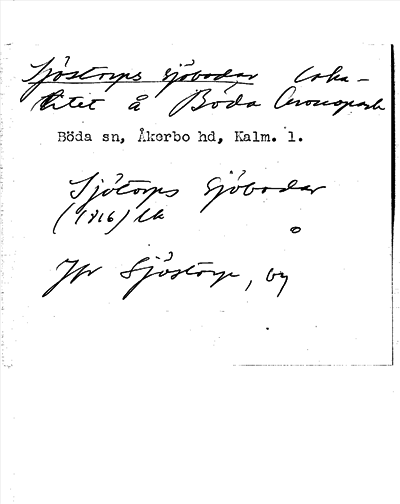 Sjöstorps sjöbodar loka-
litet å Böda Cronopark
Böda sn, Åkerbo hd, Kalm. l.
Sjötorps Sjöbodar
(1816) lk
Jfr Sjöstorp, by